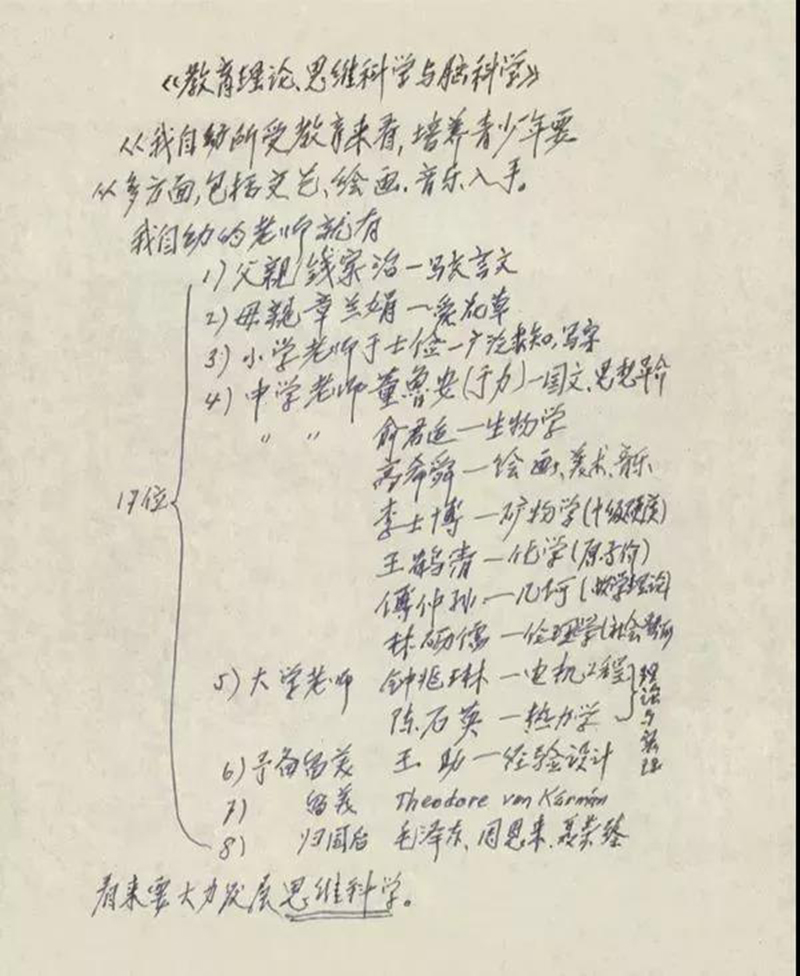 《教育理论、思维科学与脑科学》
从我自幼所受教育来看,培养青少年要
从多方面,包括文艺、绘画、音乐入手。
我自幼的老师就有
1) 父親钱家治—写文言文
2) 母親章兰娟—爱花草
3) 小学老师于士俭—广泛求知,写字
4) 中学老师 董鲁安(于力)—国文、思想革命
〃 〃 俞君适—生物学
高希舜—绘画、美术、音乐
李士博—矿物学(十级硬度)
王鹤清—化学(原子价)
傅仲孙—几何(数学理论)
林砺儒—伦理学(社会
17位
5) 大学老师 钟兆琳—电机工程
陈石英—热力学
理论与实际
6) 予备留美 王助—经验设计
7) 留美 Theodore von Kármán
8) 归国后 毛泽东、周恩来、聂荣臻
看来要大力发展思维科学。